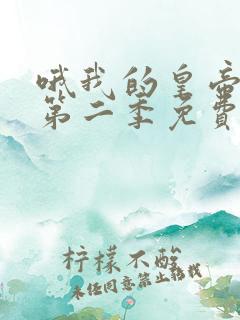 哦我的皇帝
第二季免费
柠檬不酸
未经同意禁止转载